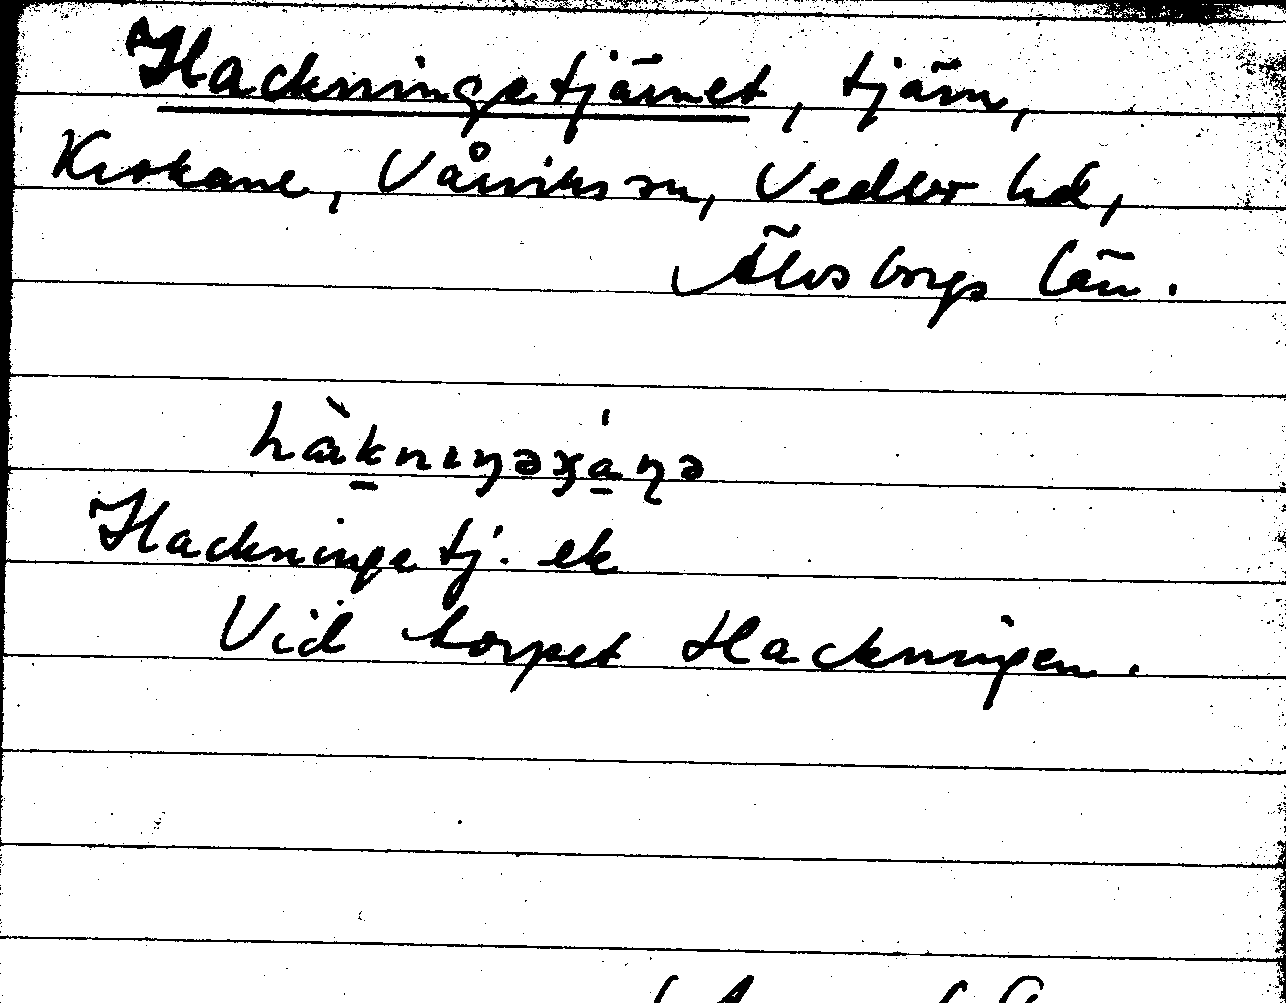 Hackningetjärnet, tjärn,
Krokane, Vårviks sn, Vedbo hd,
Älvsborgs län.
hàknıŋəɣa̱ɳə
Hackninge tj. ek
Vid torpet Hackningen.